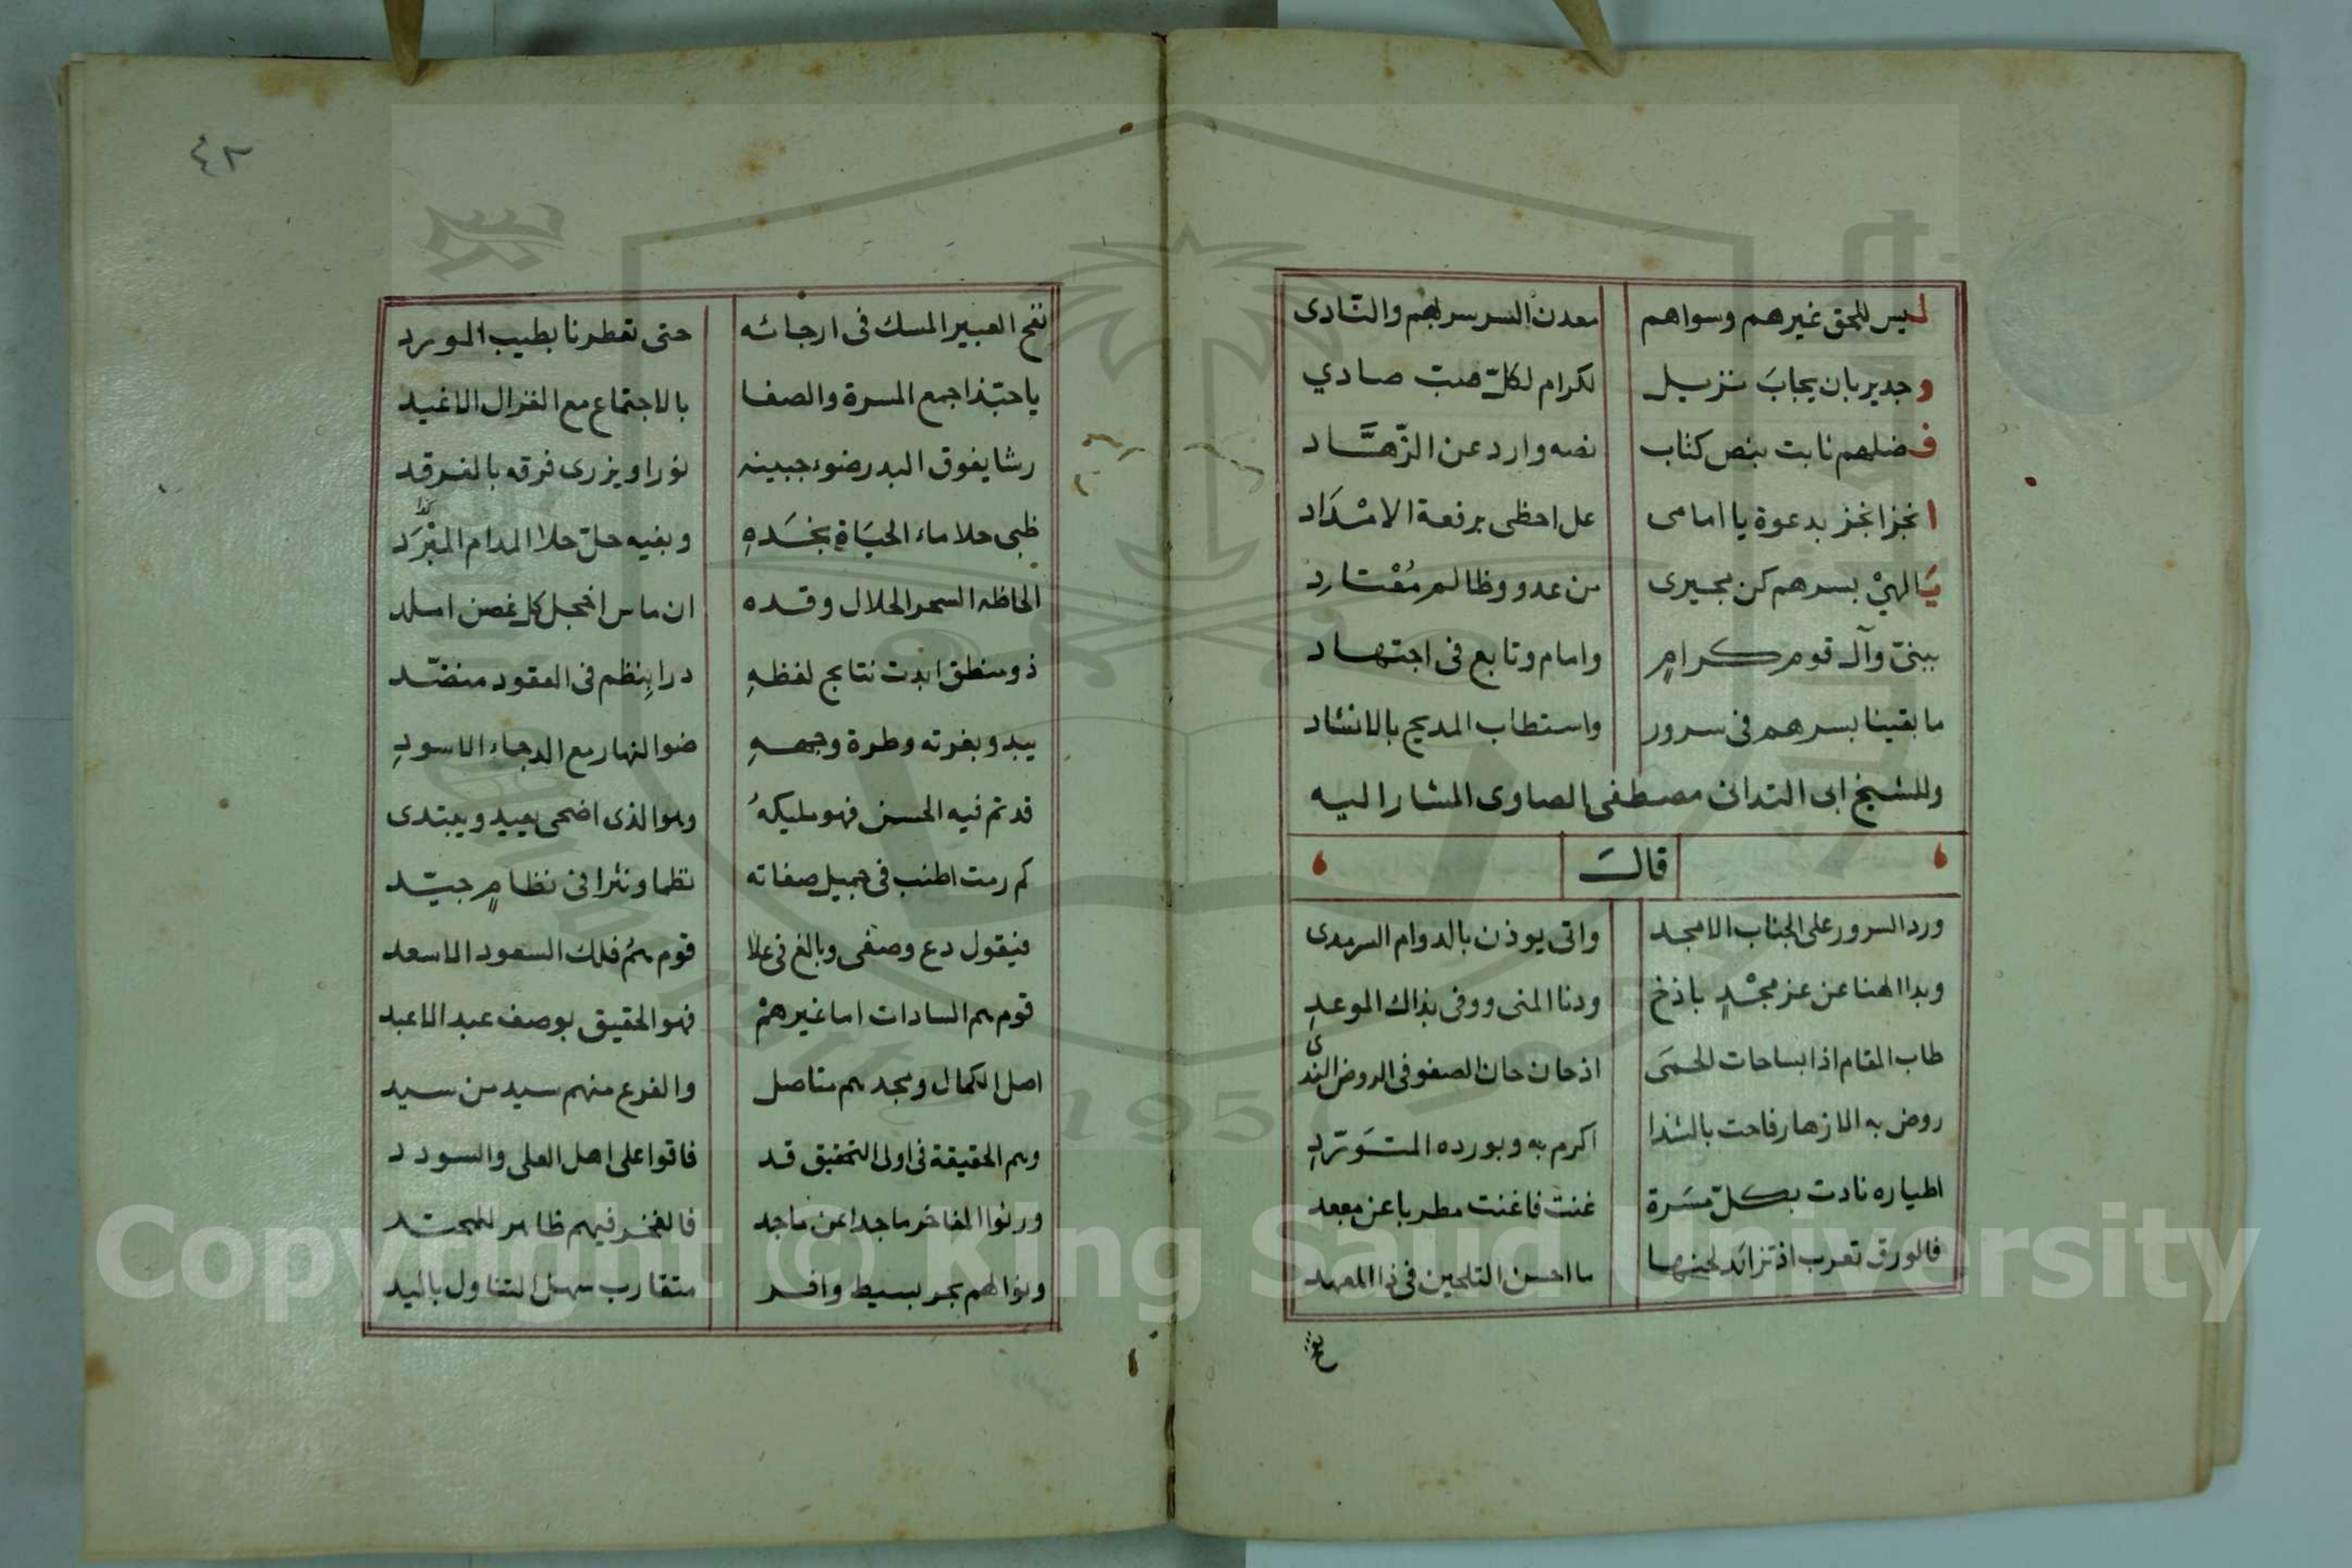 ليس للحق غيرهم وسواهم معدن السر سر بهم والنادى
وجدير بان يجابَ نزيل لكرام لكلّ صبّ صادي
فضلهم ثابت بنص كتاب نصه وارد عن الزّهَّاد
انجز انجز بدعوة يا امامى عل احظى برفعة الامْدَاد
يَا الهيْ بسرهم كن مجيرى من عدو وظالم مُعْتارد
ببنىّ وآل قوم كرامٍ وامام وتابع فى اجتهاد
ما بقينا بسرهم فى سرور واستطاب المديح بالانشاد
وللشيخ ابى التدانى مصطفى الصاوى المشار اليه
قالَ
ورد السرور على الجناب الامجد واتى يوذن بالدوام السرمدى
وبدا الهنا عن عز مجْدٍ باذخ ودنا المنى ووفى بذاك الموعدِ
طاب المقام اذا بساحات الحمَى اذ حان حان الصفو فى الروض الندى
روض به الازهار فاحت بالشذا اكرم به وبورده المتَوَرّدِ
اطياره نادت بكلّ مسَرة غنت فاغنت مطربا عن معبد
فالورق تعرب اذ تزائد لحنها ما احسن التلحين فى ذا المعهد
نفح
٤٢
نفح العبير المسك فى ارجائه حتى تعطرنا بطيب المورد
يا حبّذا جمع المسرة والصفا بالاجتماع مع الغزال الاغيد
رشا يفوق البدر ضوء جبينه نورا ويزرى فرقه بالفرقد
ظبى حلا ماء الحيَاةِ بخدَهِ وبفيه حلّ حلا المدام المبْرَد
الحاظه السحر الحلال وقده ان ماس اخجل كل غصن املد
ذو منطق ابدت نتايج لفظهِ درا بنظم فى العقود منضّد
يبدو بغرته وطرة وجههِ ضوا النهار مع الدجاء الاسودِ
قد تم فيه الحسن فهو مليكهُ وهو الذى اضحى يعيد ويبتدى
كم رمت اطنب فى جميل صفاته نظما ونثرا فى نظامٍ جيّد
فيقول دع وصفى وبالغ فى علا قوم همُ فلك السعود الاسعد
قوم هم السادات اما غيرهمْ فهو الحقيق بوصف عبد الاعبد
اصل الكمال ومجدهم متاصل والفرع منهم سيد من سيد
وهم الحقيقة فى اولى التحقيق قد فاقوا على اهل العلى والسودد
ورثوا المفاخر ماجدا عن ماجد فالفخر فيهم ظاهر للمحتد
ونوالهم بحر بسيط وافر متقارب سهل التناول باليد
Copyright © King Saud University
1957